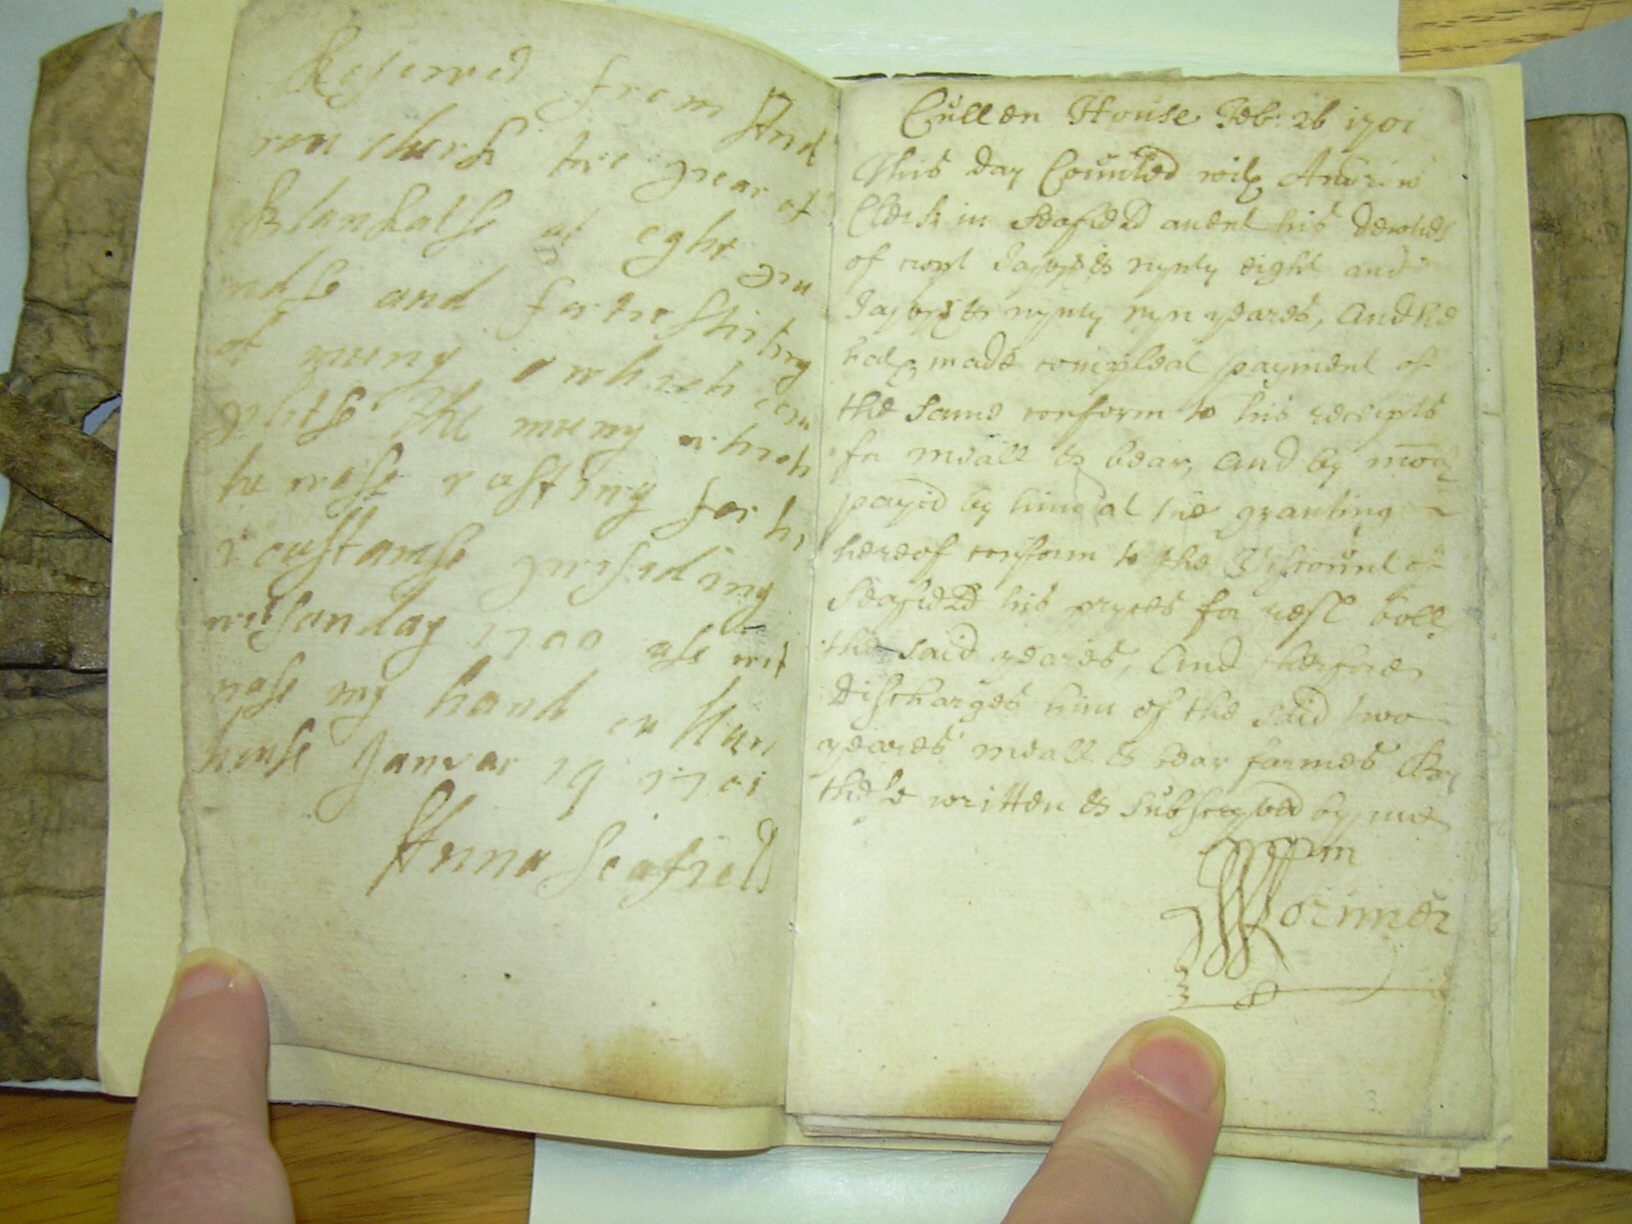 Reseived from And
rou Clerk tue pear of
Blankatse at eght pu
ndse and fortie shiling
of muny which com
plitse the muny which
he wase rasting for hi
coustamse preseiding
witsanday 1700 ase wit
nase my hand in
house Janvar 19 1701
Anna Seafield
Cullen House Feb: 26 1701
This day Counted with Andrew
Clerk in Seafield anent his dewties
of nynty eight and
nynty nyn yeares, and he
hath made compleat payment of
the same conform to his receipts
for meall & bear, and by
payed by him at the granting
hereof conform to the Viscount of
Seafield his pryces for rest boll
the said yeares, And therfore
Discharges him of the said two
yeares meall & bear farmes By
these written & Subscryved by me
Lorimer
3